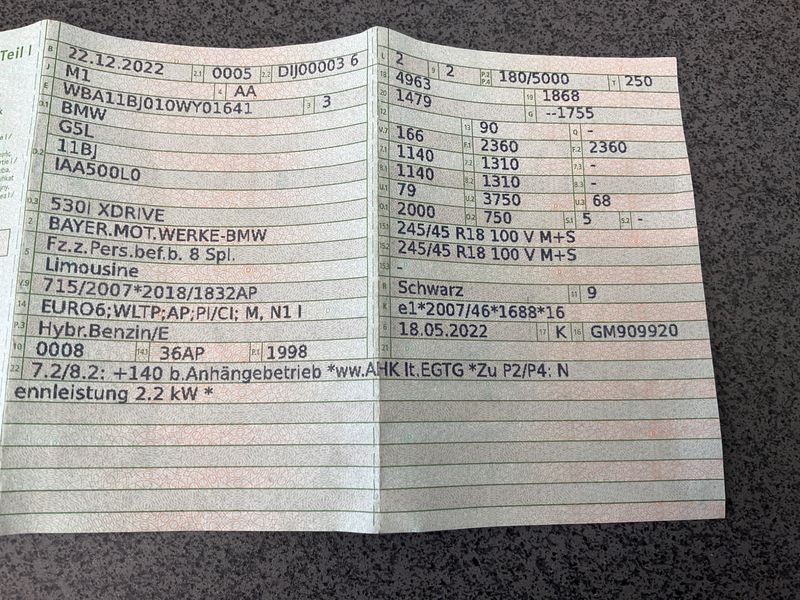 Teil I
B 22.12.2022 2.1 0005 2.2 DIJ00003 6
J M1 4 AA
E WBA11BJ010WY01641 3 3
D.1 BMW
G5L
D.2 11BJ
IAA500L0
D.3 530I XDRIVE
2 BAYER.MOT.WERKE-BMW
5 Fz.z.Pers.bef.b. 8 Spl.
Limousine
V.9 715/2007*2018/1832AP
14 EURO6;WLTP;AP;PI/CI; M, N1 I
P.3 Hybr.Benzin/E
10 0008 14.1 36AP P.1 1998
22 7.2/8.2: +140 b.Anhängebetrieb *ww.AHK lt.EGTG *Zu P2/P4: N
ennleistung 2.2 kW *
L 2 9 2 P.2 P.4 180/5000 T 250
18 4963 19 1868
20 1479 G --1755
12 13 90 Q -
V.7 166 F.1 2360 F.2 2360
7.1 1140 7.2 1310 7.3 -
8.1 1140 8.2 1310 8.3 -
U.1 79 U.2 3750 U.3 68
O.1 2000 O.2 750 S.1 5 S.2 -
15.1 245/45 R18 100 V M+S
15.2 245/45 R18 100 V M+S
15.3 -
R Schwarz 11 9
K e1*2007/46*1688*16
6 18.05.2022 17 K 16 GM909920
21